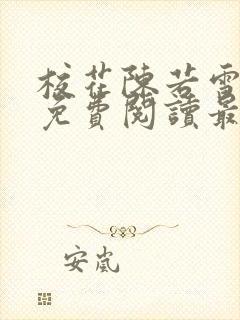 校花陳若雪
免費閱讀最
安嵐